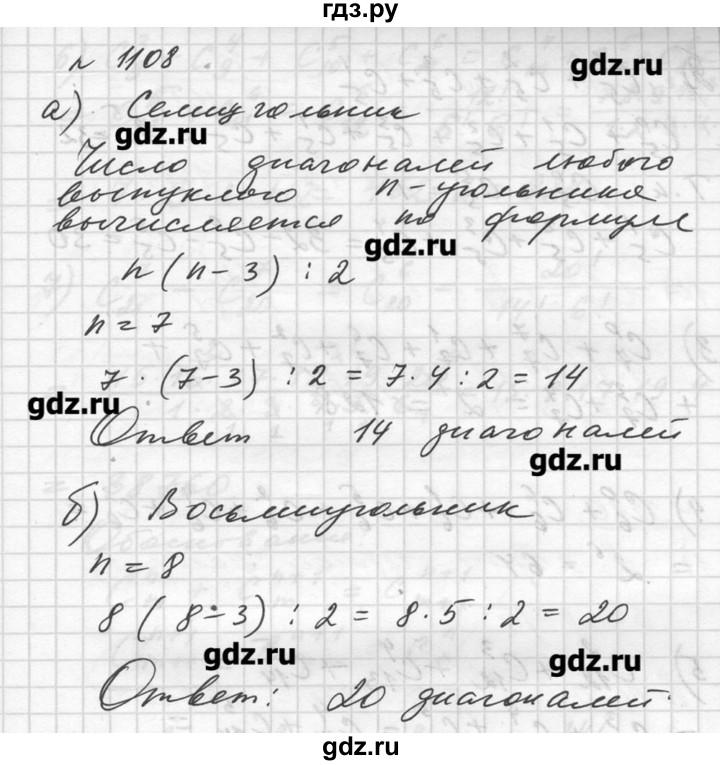 гдз.ру
№ 1108
gdz.ru
а) Семиугольник
gdz.ru
Число диагоналей любого
выпуклого n-угольника
вычисляется по формуле
gdz.ru
n (n - 3) : 2
n = 7
7 · (7-3) : 2 = 7·4 : 2 = 14
gdz.ru
Ответ 14 диагоналей
gdz.ru
б) Восьмиугольник
n = 8
8 ( 8-3) : 2 = 8·5 : 2 = 20
gdz.ru
gdz.ru
Ответ: 20 диагоналей.
gdz.ru